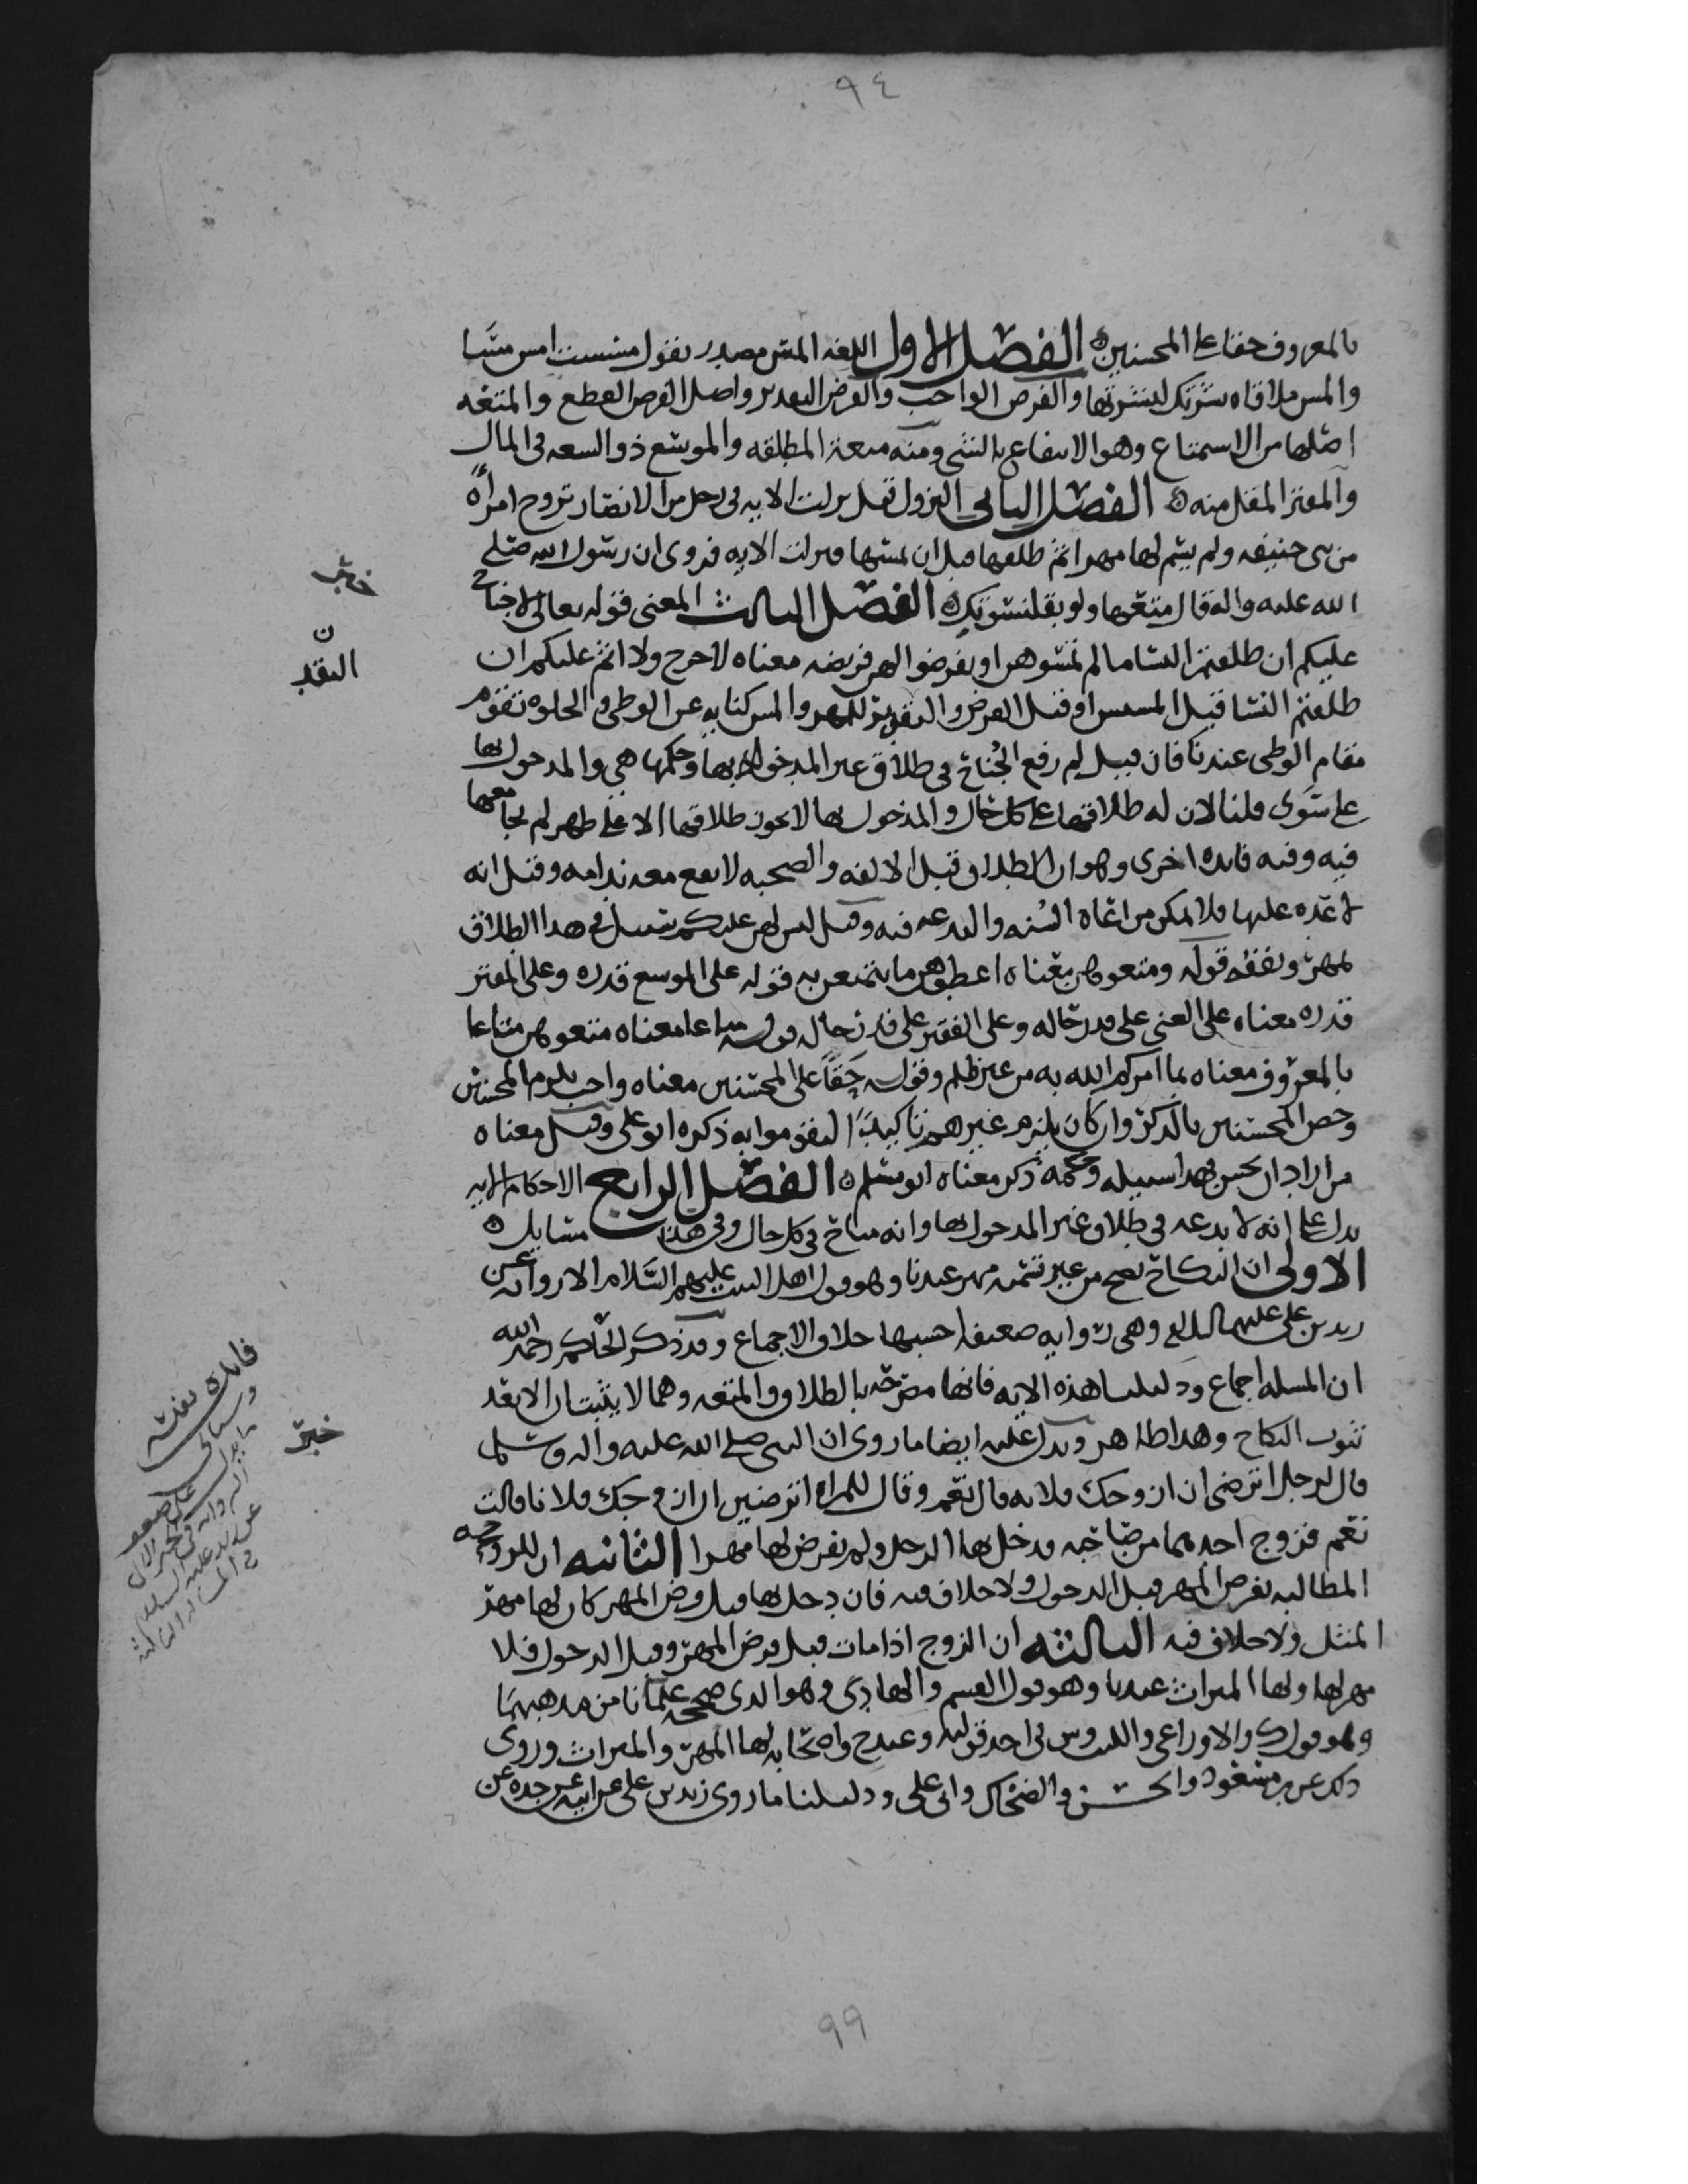 ٩٤
بالمعروف حقا على المحسنين ه الفصل الاول اللغه المس مصدر يقول مسست امس مسًا
والمس ملاقاه بشرتك لبشرتها والفرض الواجب والفرض التقدير واصل الفرض القطع والمتعه
اصلها من الاستمتاع وهو الانتفاع بالشي ومنه متعة المطلقه والموسع ذو السعه في المال
والمقتر المقل منه ه الفصل الثاني النزول قيل نزلت الايه في رجل من الانصار تزوج امرأة
من بني حنيفه ولم يسم لها مهرا ثم طلقها قبل ان يمسها فنزلت الايه فروي ان رسول الله صلى
الله عليه واله قال متعها ولو بقلنسوتك ه الفصل الثالث المعنى قوله تعالى لا جناح
عليكم ان طلقتم النسا ما لم تمسوهن او تفرضوا لهن فريضه معناه لا حرج ولا اثم عليكم ان
طلقتم النسا قبل المسيس او قبل الفرض والتقدير للمهر والمس كنايه عن الوطي والخلوه تقوم
مقام الوطي عندنا فان قيل لم رفع الجُناح في طلاق غير المدخول بها وحكمها هي والمدخول بها
على سَوى قلنا لان له طلاقها على كل حال والمدخول بها لا يجوز طلاقها الا على طهر لم يجامعها
فيه وفيه فايده اخرى وهو ان الطلاق قبل الالفه والصحبه لا يقع معه ندامه وقيل انه
لا عده عليها فلا يمكن مراعاه السُنه والبدعه فيه وقيل ليس لهن عليكم سبيل في هذا الطلاق
بمهر ونفقه قوله ومتعوهن معناه اعطوهن ما يتمتعن به قوله على الموسع قدره وعلى المقتر
قدره معناه على الغني على قدر حاله وعلى الفقير على قدر حاله قوله متاعا معناه متعوهن متاعا
بالمعروف معناه بما امركم الله به من غير ظلم وقوله حَقًا على المحسنين معناه واجب يلزم المحسنين
وخص المحسنين بالذكر وان كان يلزم غيرهم تاكيدًا ليقوموا به ذكره ابو علي وقيل معناه
من اراد ان يحسن فهذا سبيله وحكمه ذكر معناه ابو مسلم ه الفصل الرابع الاحكام الايه
يدل على انه لا بدعه في طلاق غير المدخول بها وانه مباح في كل حال وفي هذا مسايل ه
الاولى ان النكاح يصح من غير تسميه مهر عندنا وهو قول اهل البيت عليهم السَّلام الا روايه عن
زيد بن علي عليهما السلام وهي روايه ضعيفه احسبها خلاف الاجماع وقد ذكر الحاكم رحمه الله
ان المسله اجماع ودليلنا هذه الايه فانها مصرحه بالطلاق والمتعه وهما لا يثبتان الا بعد
ثبوت النكاح وهذا ظاهر ويدل عليه ايضا ما روي ان النبي صلى الله عليه واله وسلم
قال لرجل اترضى ان ازوجك فلانه قال نعم وقال للمراه اترضين ان ازوجك فلانا قالت
نعم فزوج احدهما من صاحبه فدخل بها الرجل ولم يفرض لها مهرا الثانيه ان للزوجه
المطالبه بفرض المهر قبل الدخول ولا خلاف فيه فان دخل بها قبل فرض المهر كان لها مهر
المثل ولا خلاف فيه الثالثه ان الزوج اذا مات قبل فرض المهر وقبل الدخول فلا
مهر لها ولها الميراث عندنا وهو قول القسم والهادي وهو الذي صححه علمانا من مذهبهما
وهو قول ك والاوراعي والليث وش في احد قوليه وعند ح واصحابه لها المهر والميراث وروي
ذلك عن بن مسعود والحسن والضحاك وابي علي ودليلنا ما روى زيد بن علي عن ابيه عن جده عن
خبر
ن
التقدير
خبر
فايده نفيسه
٩٩